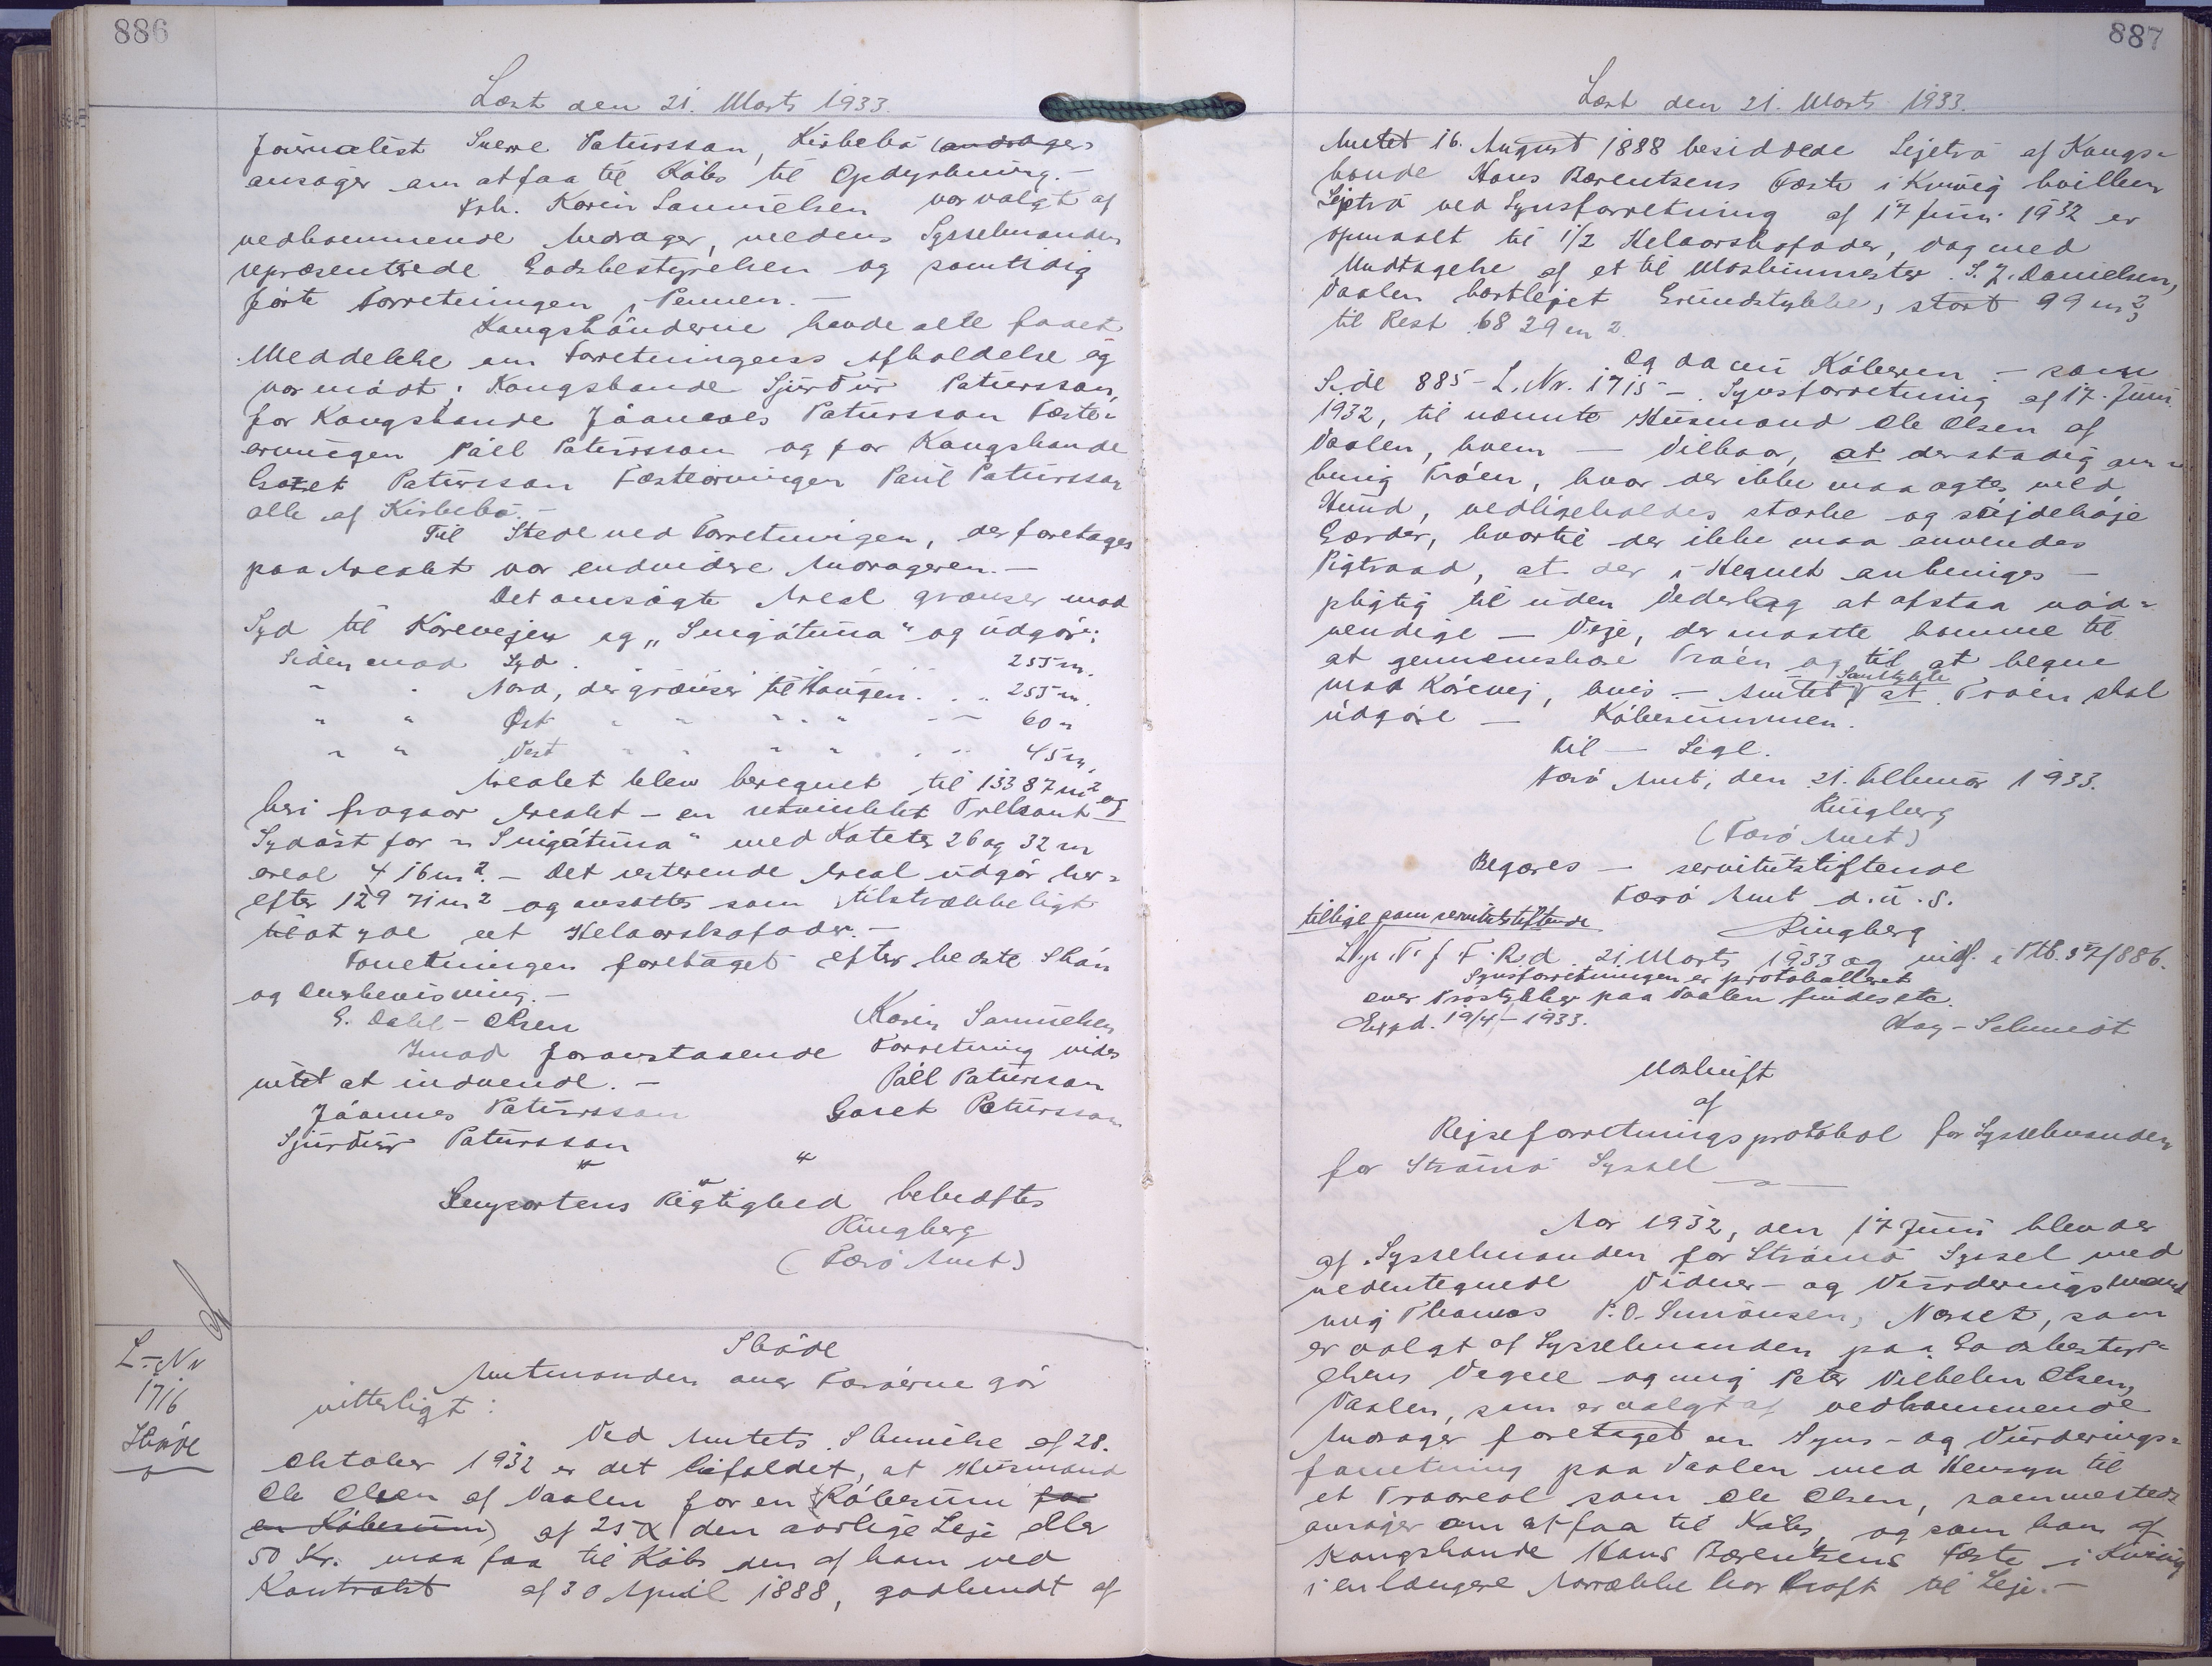 886
Læst den 21. Marts 1933.
Journalist Sverre Patursson, Kirkebø (andrager
ansøger om at faa til Købs til Opdyrkning.-
Frk. Karin Samuelsen var valgt af
vedkommende Andrager, medens Sysselmanden
repræsenterede Godsbestyrelsen og samtidig
førte Forretningen i Pennen.-
Kongsbønderne havde alle faaet
Meddelelse om Forretningens Afholdelse og
var mødt: Kongsbonde Sjúrður Patursson,
for Kongsbonde Jóannes Patursson Fæste-
arvingen Páll Patursson og for Kongsbonde
Gazet Patursson Fæstearvingen Paul Patursson
alle af Kirkebø.-
Til Stede ved Forretningen, der foretages
paa Arealet var endvidere Andrageren.-
Det ansøgte Areal grænser mod
Syd til Kørevejen og „Snigátuna“ og udgør:
Siden mod Syd . . . . 255 m.
" " Nord, der grænser til Haugen . . . 255 m.
" " Øst " " " " - - 60 "
" " Vest " " " " . . 45 m.
Arealet blev beregnet til 13387 m² og
heri fragaar Arealet - en retvinklet Trekant
Sydøst for "Snigátuna" med Kateter 26 og 32 m
areal 416 m².- Det resterende Areal udgør her-
efter 12971 m² og ansættes som tilstrækkeligt
til at give eet Helaarskofoder.-
Forretningen foretaget efter bedste Skøn
og Overbevisning.-
E. Dahl-Olsen Karin Samuelsen
Imod foranstaaende Forretning vides
intet at indvende.- Páll Patursson
Jóannes Patursson Gazet Patursson
Sjúrður Patursson
" " "
Genpartens Rigtighed bekræftes
Ringberg
(Færø Amt)
L.-Nr
1716
Skøde
Skøde
Amtmanden over Færøerne gør
vitterligt:
Ved Amtets Skrivelse af 28.
Oktober 1932 er det bifaldet, at Husmand
Ole Olsen af Vaalen for en Købesum (for
en Købesum) af 25 X den aarlige Leje eller
50 Kr. maa faa til Købs den af ham ved
Kontrakt af 30 April 1888, godkendt af
887
Læst den 21. Marts 1933.
Amtet 16. August 1888 besiddede Lejetrø af Kongs-
bonde Hans Bærentsens Fæste i Kvivig hvilken
Lejetrø ved Synsforretning af 17 Juni 1932 er
opmaalt til 1/2 Helaarskofoder, dog med
Undtagelse af et til Maskinmester S. J. Danielsen,
Vaalen bortlejet Grundstykke, stort 99 m²,
til Rest 6829 m².
Og da nu Køberen - som
Side 885 - L. Nr. 1715 -. Synsforretning af 17. Juni
1932, til nævnte Husmand Ole Olsen af
Vaalen, hvem - Vilkaar, at der stadig om-
kring Trøen, hvor der ikke maa øgtes med
Hund, vedligeholdes stærke og søjdehøje
Gærder, hvortil der ikke maa anvendes
Pigtraad, at der i Hegnet anbringes -
pligtig til uden Vederlag at afstaa nød-
vendige - Veje, der maatte komme til
at gennemskære Trøen og til at hegne
mod Kørevej, hvis - Amtet Samtykke at Trøen skal
udgøre - Købesummen.
Til - Segl.
Færø Amt, den 21. Februar 1933.
Ringberg
(Færø Amt)
Begæres - servitutstiftende
Færø Amt d. u. s.
Ringberg
tillige som servitutstiftende
L. p. T. f F. R. d. 21 Marts 1933 og indf. i Ptb. S7/886.
Synsforretningen er protokolleret
over Trøstykker paa Vaalen findes etc.
Expd. 19/4 - 1933. Hag-Schmidt
Udskrift
af
Rejseforretningsprotokol for Sysselmanden
for Strømø Syssel
Aar 1932, den 17 Juni blev der
af Sysselmanden for Strømø Syssel med
nedentegnede Vidner- og Vurderingsmænd
mig Thomas P. O. Simonsen, Næset, som
er valgt af Sysselmanden paa Godsbestyr-
elsens Vegne og mig Peter Vilhelm Olsen,
Vaalen, som er valgt af vedkommende
Andrager foretaget en Syns- og Vurderings-
forretning paa Vaalen med Hensyn til
et Trøareal som Ole Olsen, sammesteds
ansøger om at faa til Købs, og som han af
Kongsbonde Hans Bærentsens Fæste i Kvivig
i en længere Aarrække har haft til Leje.-